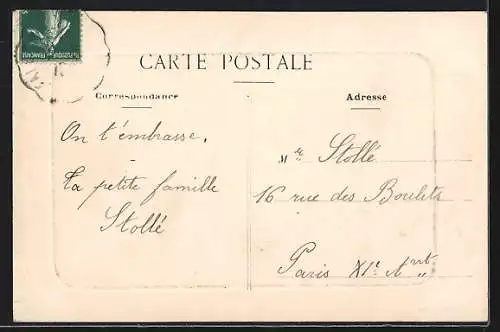 CARTE POSTALE
Correspondance
On t'embrasse.
La petite famille
Stollé
Adresse
Mr Stollé
16 rue des Boulets
Paris XIe Arrt